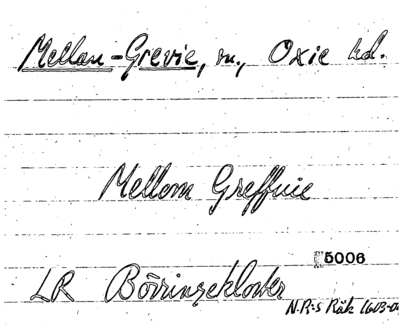 Mellan-Grevie, sn., Oxie hd.
Mellom Greffuie
5006
LR Börringekloster
N.R:s Räk 1603-0